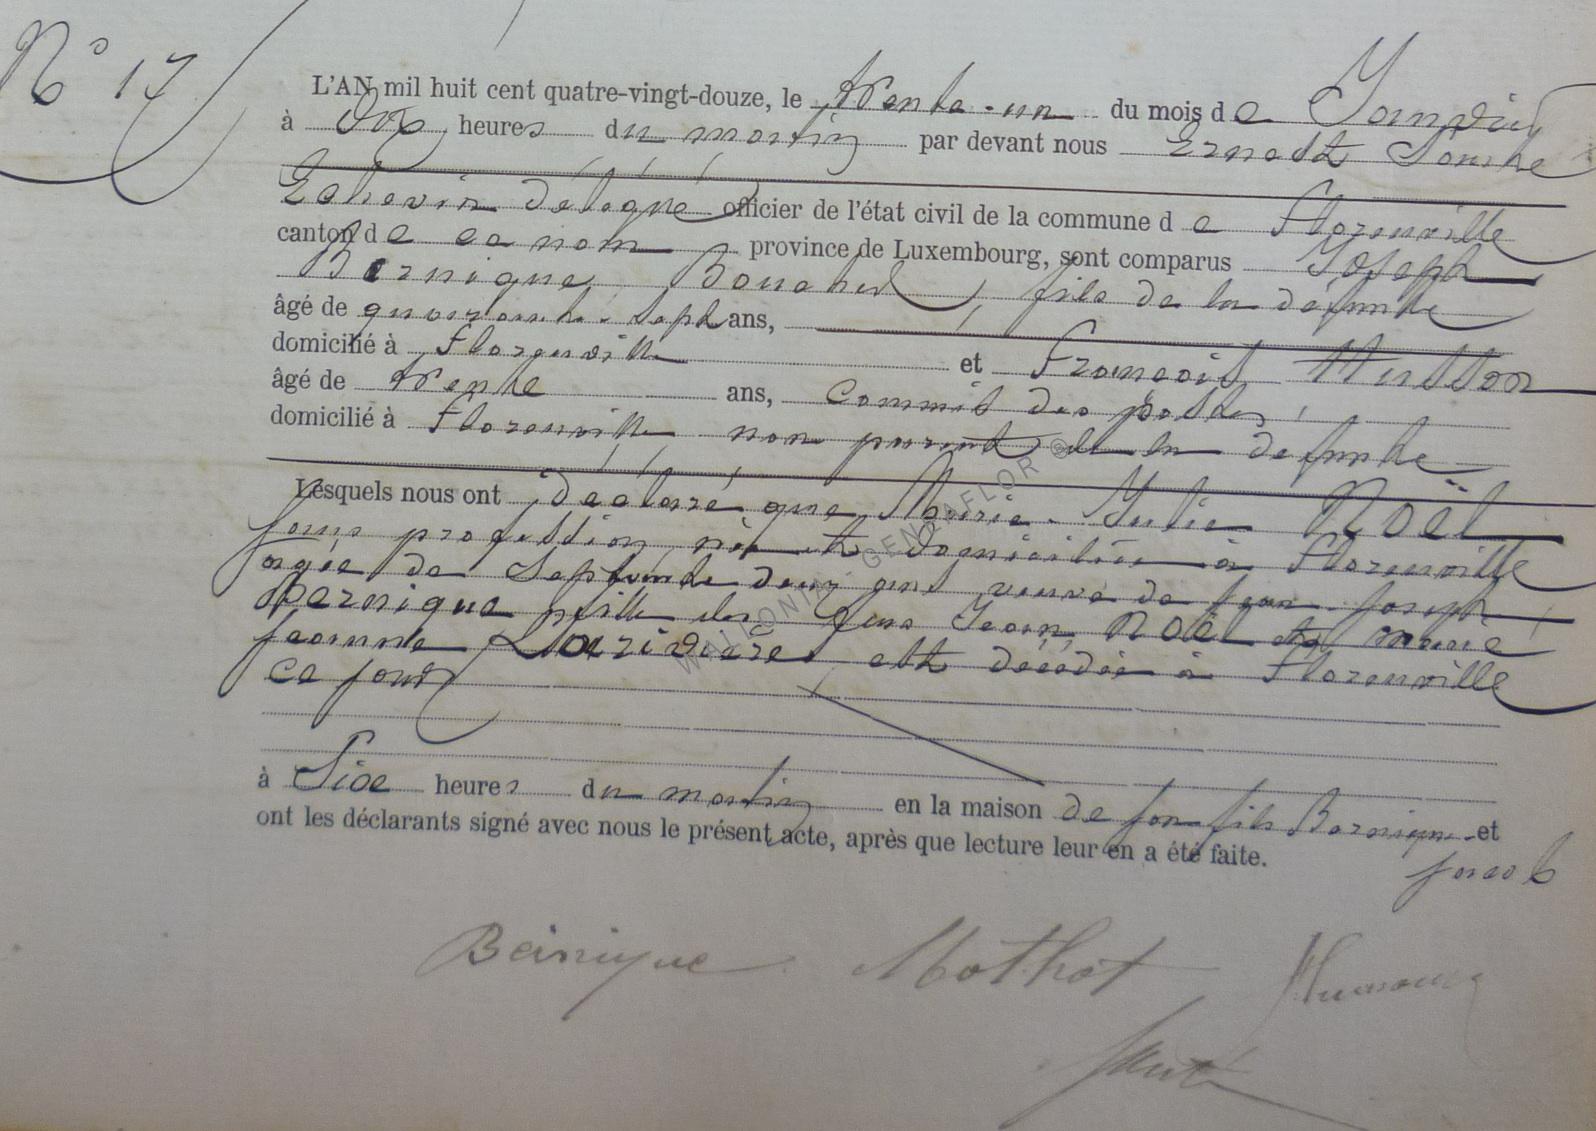 N° 17
L'AN mil huit cent quatre-vingt-douze, le trente-un du mois de Janvier
à dix heures du matin par devant nous Ernest
Echevin délégué officier de l'état civil de la commune de Florenville
canton de ce nom province de Luxembourg, sont comparus Joseph
Bernique, Boucher, fils de la défunte
âgé de quarante-sept ans,
domicilié à Florenville et François Husson
âgé de trente ans, commis des postes,
domicilié à Florenville non parent de la défunte
Lesquels nous ont déclaré que Marie-Julie Noël
sans profession, née et domiciliée à Florenville
agée de septante deux ans veuve de Jean-Joseph
Bernique fille des feus Jean Noël et Marie
Jeanne est décédée à Florenville
ce jour
à Six heures du matin en la maison de son fils Bernique et
ont les déclarants signé avec nous le présent acte, après que lecture leur en a été faite.
Bernique Mothot
WALLONIA - GENEAFLOR ©